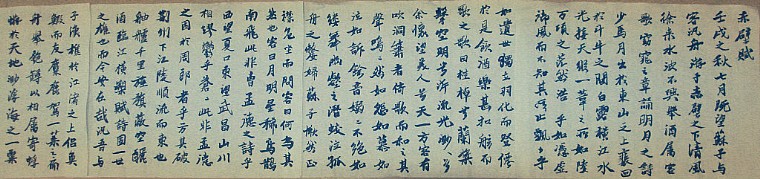 赤壁賦
壬戌之秋七月既望蘇子與
客泛舟游于赤壁之下清風
徐来水波不興舉酒属客
歌窈窕之章誦明月之詩
少焉月出於東山之上裴回
於斗牛之間白露横江水
光接天縱一葦之所如陵
萬頃之茫然浩浩乎如憑虛
御風而不知其所止飄飄乎
如遺世獨立羽化而登僊
於是飲酒樂甚扣舷而
歌之歌曰桂棹兮蘭槳
擊空明兮泝流光渺渺兮
余懷望美人兮天一方客有
吹洞簫者倚歌而和之其
聲嗚嗚然如怨如慕如
泣如訴餘音嫋嫋不絶如
縷舞幽壑之潛蛟泣孤
舟之嫠婦蘇子愀然正
襟危坐而問客曰何為其
然也客曰月明星稀烏鵲
南飛此非曹孟德之詩乎
西望夏口東望武昌山川
相繆鬱乎蒼蒼此非孟德
之困於周郎者乎方其破
荆州下江陵順流而東也
舳艫千里旌旗蔽空釃
酒臨江横槊賦詩固一世
之雄也而今安在哉況吾與
子漁樵於江渚之上侶魚
鰕而友麋鹿駕一葉之扁
舟舉匏樽以相属寄蜉
蝣於天地渺滄海之一粟